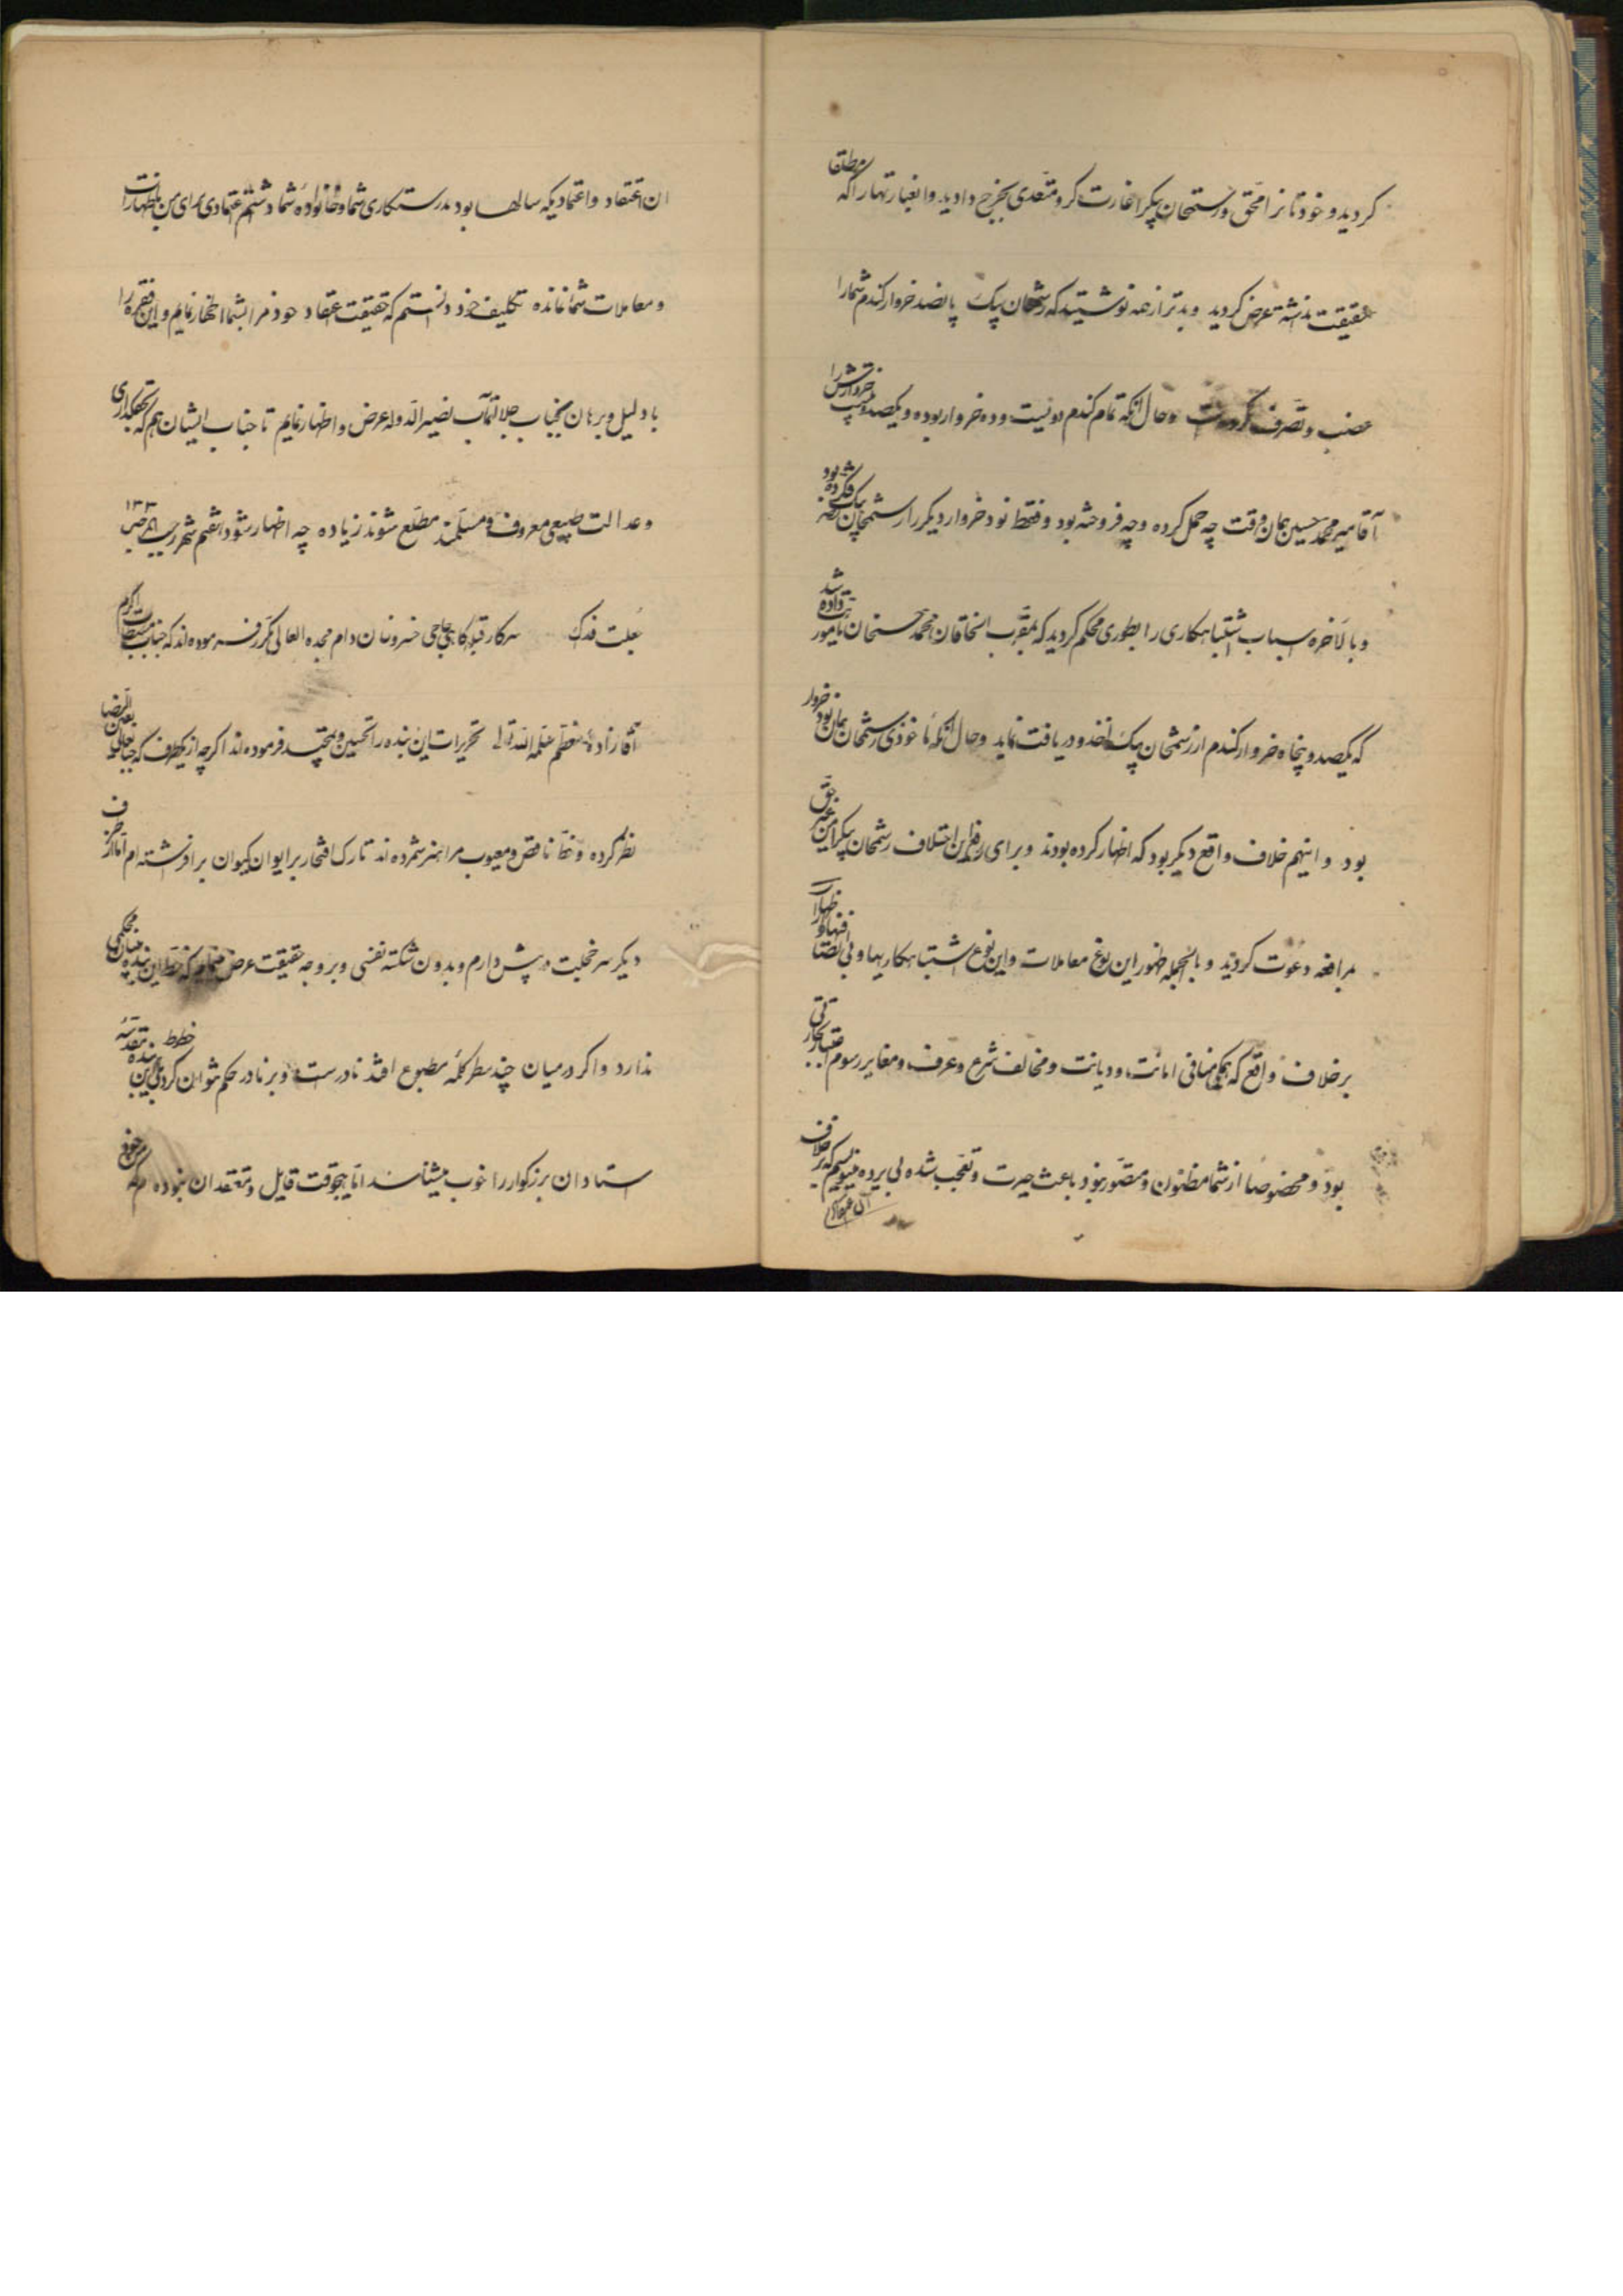 کردید و خودتانرا محق و رستمخان بیک را غارت کر و متعدی بخرج دادید و اینعبارتها را که مطلقا
حقیقت نداشته عرض کردید و بدتر از همه نوشتید که رستمخان بیک پانصد خروار کندم شما را
غصب و تصرف کرده است و حال آنکه تمام کندم دویست و ده خروار بوده و یکصد و بیست خروارش را
آقا میر محمد حسین همان وقت چه حمل کرده و چه فروخته بود و فقط نود خروار دیکر را رستمخان بیک
و بالاخره اسباب اشتباهکاری را بطوری محکم کردید که مقرب الخاقان محمد حسنخان مامور
که یکصد و پنجاه خروار کندم از رستمخان بیک اخذ و دریافت نماید و حال آنکه ماخوذی رستمخان همان نود خروار
بود و اینهم خلاف واقع دیکر بود که اظهار کرده بودند و برای رفع این اختلاف رستمخان بیک را
مرافعه دعوت کردید و بالجمله ظهور این نوع معاملات و این نوع اشتباهکاریها و بی انصافیها و اظهارات
برخلاف واقع که همکی منافی امانت و دیانت و مخالف شرع و عرف و مغایر رسوم
بود و مخصوصا از شما مظنون و متصور نبود باعث حیرت و تعجب شده بی پرده مینویسم که برخلاف
آن اعتقاد و اعتمادیکه سالها بود بدرستکاری شما و خانواده شما داشتم اعتمادی برای من باظهارات
و معاملات شما نمانده تکلیف خود دانستم که حقیقت اعتقاد خود مرا بشما اظهار نمایم و این فقره را
با دلیل و برهان بجناب جلالتمآب نصیر الدوله عرض و اظهار نمایم تا جناب ایشان هم که
و عدالت طبیعی معروف و مسلمند مطلع شوند زیاده چه اظهار شود شهر
بعلت فدک سرکار قبله کاهی حاجی خسرو خان دام مجده العالی مکرر فرموده اند که جناب
آقازاده معظم سلمه الله تعالی تحریرات این بنده را تحسین و تمجید فرموده اند اکرچه از یکطرف که
نظر کرده و خط ناقص و معیوب مرا هنر شمرده اند تارک افتخار بر ایوان کیوان برافراشته ام اما از طرف
دیکر سر خجلت در پیش دارم و بدون شکسته نفسی و بر وجه حقیقت عرض مینمایم که خط این بنده بنیان محکمی
ندارد و اکر در میان چند سطر کلمه مطبوع افتد نادر است و بر نادر حکم نتوان کرد بلی این بنده خطوط
استادان بزرکوار را خوب میشناسد اما هیچوقت قایل و معتقد آن نبوده ام که